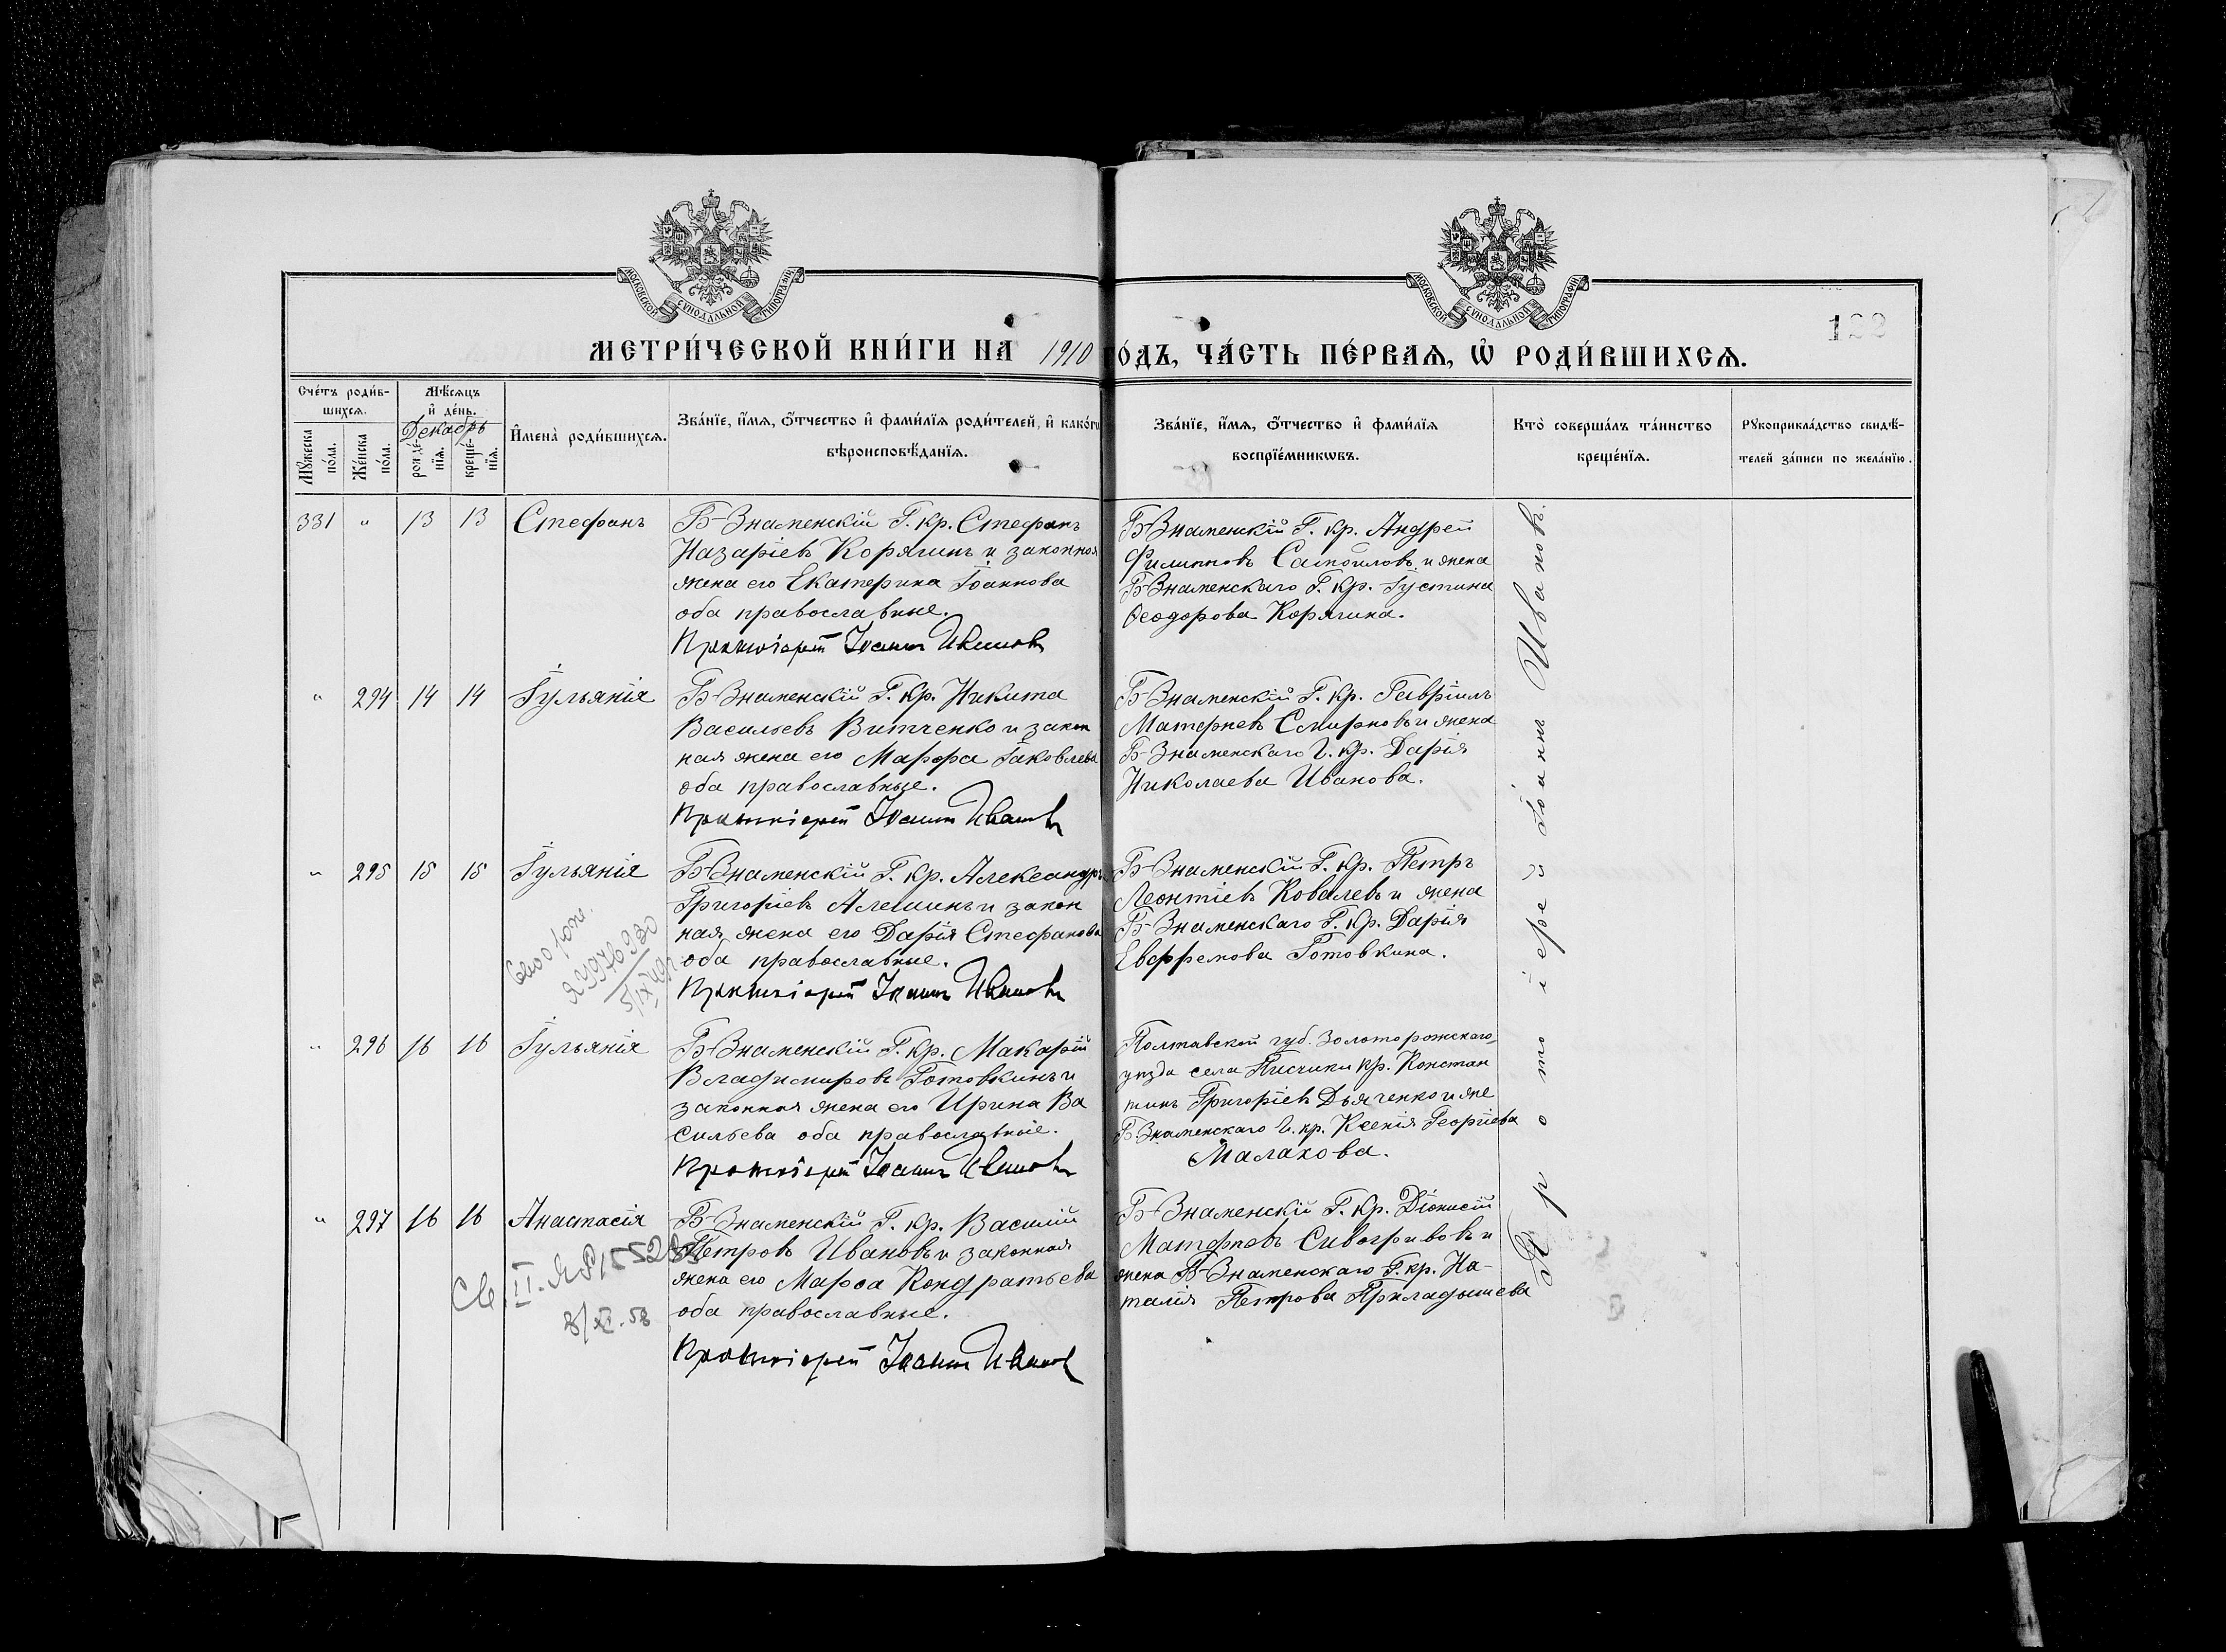 МОСКОВСКОЙ СУНОДАЛЬНОЙ ТИПОГРАФІИ
МОСКОВСКОЙ СУНОДАЛЬНОЙ ТИПОГРАФІИ
122
МЕТРИ́ЧЕСКОЙ КНИ́ГИ НА 1910 ГО́ДЪ, ЧА́СТЬ ПЕ́РВАѦ, Ѡ҆ РОДИ́ВШИХСѦ.
Сче́тъ роди́в-
шихсѧ.
Мꙋ́жеска
по́ла.
Же́нска
по́ла.
Мѣ́сѧцъ
и҆ де́нь.
Декабрь
рожде́-
нїѧ.
креще́-
нїѧ.
И҆мена̀ роди́вшихсѧ.
Зва́нїе, и҆́мѧ, ѻ҆́тчество и҆ фами́лїѧ роди́телей, и҆ како́гѡ
вѣроисповѣ́данїѧ.
Зва́нїе, и҆́мѧ, ѻ҆́тчество и҆ фами́лїѧ
воспрїе́мникѡвъ.
Кто̀ соверша́лъ та́инство
креще́нїѧ.
Рꙋкоприкла́дство свидѣ́-
телей за́писи по жела́нїю.
331 " 13 13 Стефанъ
Б-Знаменскій Г. кр. Стефанъ
Назаріевъ Корягинъ и законная
жена его Екатерина Іоаннова
оба православные.
Протоіерей Іоаннъ Ивановъ
Б-Знаменскій Г. кр. Андрей
Филипповъ Самойловъ и жена
Б-Знаменскаго Г. кр. Іустина
Ѳеодорова Корягина.
" 294 14 14 Іульянія
Б-Знаменскій Г. кр. Никита
Васильевъ Витченко и закон
ная жена его Марѳа Іаковлева
оба православные.
Протоіерей Іоаннъ Ивановъ
Б-Знаменскій Г. кр. Гавріилъ
Матфіевъ Смирновъ и жена
Б-Знаменскаго Г. кр. Дарія
Николаева Иванова.
" 295 15 15 Іульянія
Б-Знаменскій Г. кр. Александръ
Григоріевъ Алешинъ и закон
ная жена его Дарія Стефанова
оба православные.
Протоіерей Іоаннъ Ивановъ
Б-Знаменскій Г. кр. Петръ
Леонтіевъ Ковалевъ и жена
Б-Знаменскаго Г. кр. Дарія
Евфремова Готовкина.
" 296 16 16 Іульянія
Б-Знаменскій Г. кр. Макарій
Владимировъ Готовкинъ и
законная жена его Ирина Ва
сильева оба православные.
Протоіерей Іоаннъ Ивановъ
Полтавской губ. Золотоножскаго
уѣзда села кр. Констан
тинъ Григоріевъ Дьяченко и же
Б-Знаменскаго Г. кр. Ксенія Георгіева
Малахова.
" 297 16 16 Анастасія
Б-Знаменскій Г. кр. Василій
Петровъ Ивановъ и законная
жена его Марѳа Кондратьева
оба православные.
Протоіерей Іоаннъ Ивановъ
Б-Знаменскій Г. кр. Діонисій
Матфіевъ Сивогривовъ и
жена Б-Знаменскаго Г. кр. На-
талія Петрова Прикладышева
Протоіерей Іоаннъ Ивановъ.